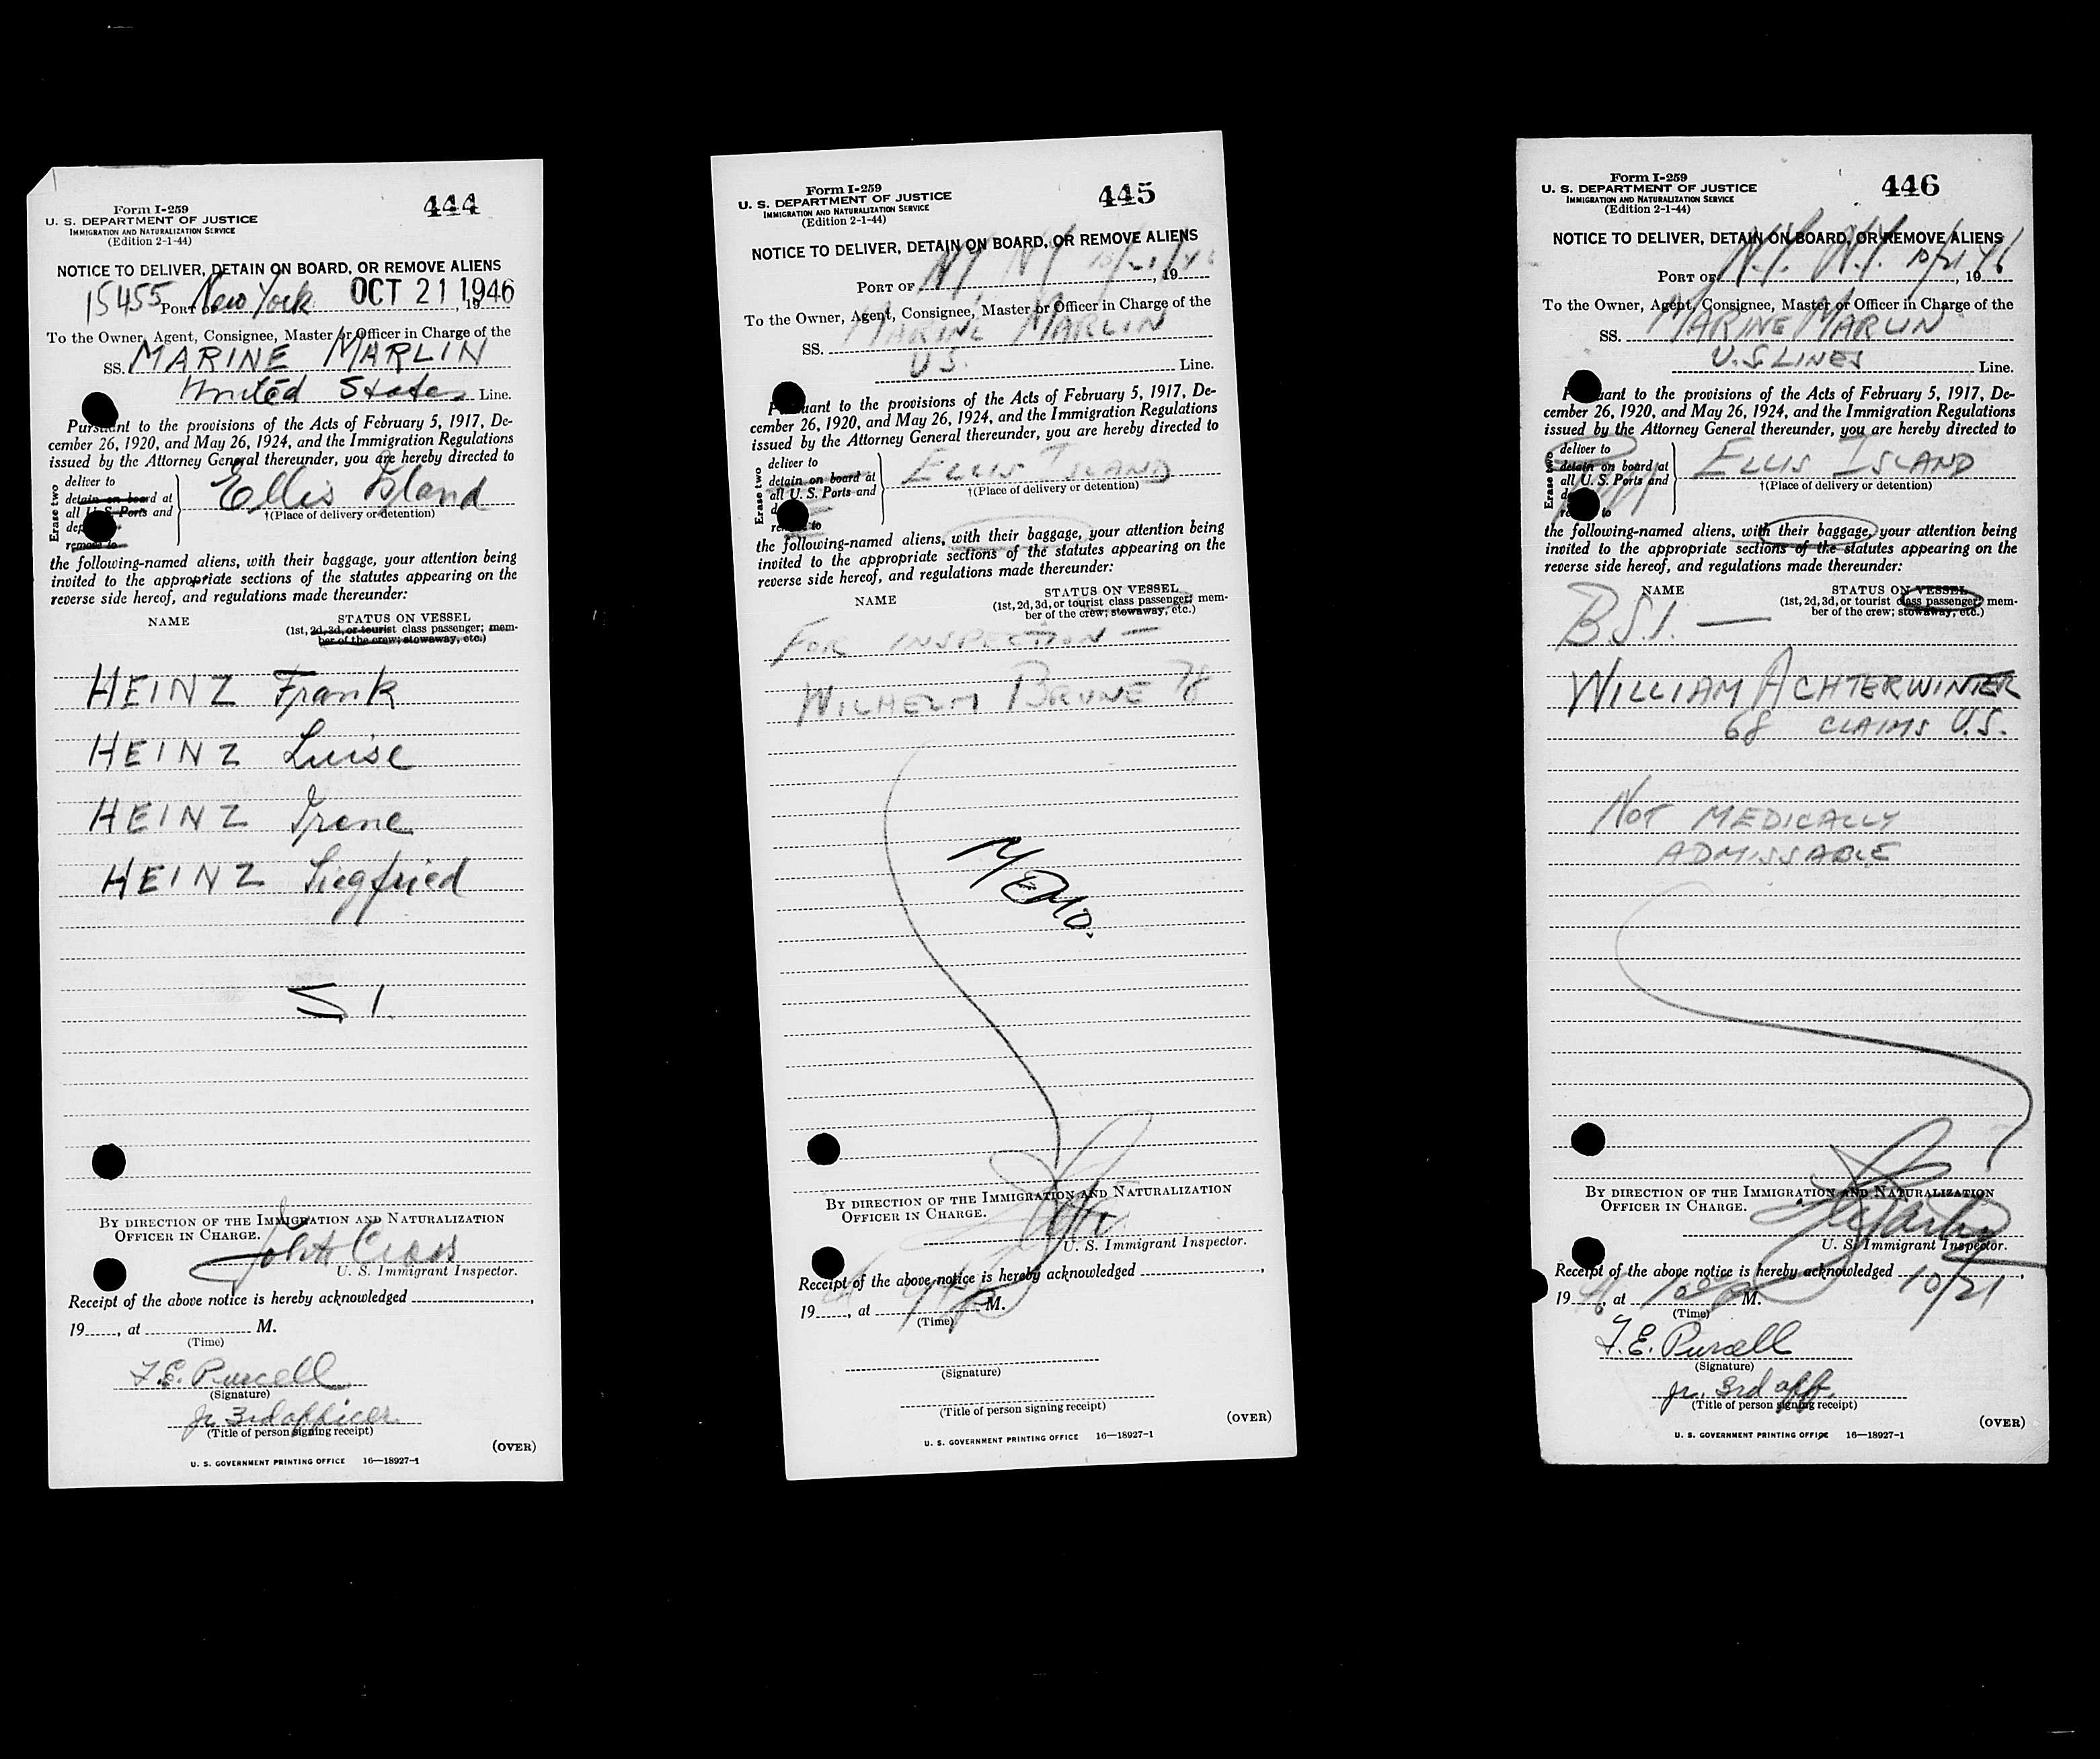 Form I-259
U. S. DEPARTMENT OF JUSTICE
IMMIGRATION AND NATURALIZATION SERVICE
(Edition 2-1-44)
444
NOTICE TO DELIVER, DETAIN ON BOARD, OR REMOVE ALIENS
15455 PORT OF New York OCT 21 1946, 19
To the Owner, Agent, Consignee, Master or Officer in Charge of the
SS. MARINE MARLIN
United States Line.
Pursuant to the provisions of the Acts of February 5, 1917, De-
cember 26, 1920, and May 26, 1924, and the Immigration Regulations
issued by the Attorney General thereunder, you are hereby directed to
Erase two
deliver to
detain on board at
all U. S. Ports and
remove to
Ellis Island
†(Place of delivery or detention)
the following-named aliens, with their baggage, your attention being
invited to the appropriate sections of the statutes appearing on the
reverse side hereof, and regulations made thereunder:
NAME STATUS ON VESSEL
(1st, 2d, 3d, or tourist class passenger; mem-
ber of the crew; stowaway, etc.)
HEINZ Frank
HEINZ Luise
HEINZ Irene
HEINZ Siegfried
S I.
BY DIRECTION OF THE IMMIGRATION AND NATURALIZATION
OFFICER IN CHARGE.
U. S. Immigrant Inspector.
Receipt of the above notice is hereby acknowledged ,
19 , at M.
(Time)
F.E. Purcell
(Signature)
jr. 3rd officer
(Title of person signing receipt)
(OVER)
U. S. GOVERNMENT PRINTING OFFICE 16—18927-1
Form I-259
U. S. DEPARTMENT OF JUSTICE
IMMIGRATION AND NATURALIZATION SERVICE
(Edition 2-1-44)
445
NOTICE TO DELIVER, DETAIN ON BOARD, OR REMOVE ALIENS
PORT OF NY NY 10/21/46, 19
To the Owner, Agent, Consignee, Master or Officer in Charge of the
SS. MARINE MARLIN
U.S. Line.
Pursuant to the provisions of the Acts of February 5, 1917, De-
cember 26, 1920, and May 26, 1924, and the Immigration Regulations
issued by the Attorney General thereunder, you are hereby directed to
Erase two
deliver to
detain on board at
all U. S. Ports and
remove to
ELLIS ISLAND
†(Place of delivery or detention)
the following-named aliens, with their baggage, your attention being
invited to the appropriate sections of the statutes appearing on the
reverse side hereof, and regulations made thereunder:
NAME STATUS ON VESSEL
(1st, 2d, 3d, or tourist class passenger; mem-
ber of the crew; stowaway, etc.)
FOR INSPECTION —
WILHELM BRUNE 78
MEMO.
BY DIRECTION OF THE IMMIGRATION AND NATURALIZATION
OFFICER IN CHARGE.
U. S. Immigrant Inspector.
Receipt of the above notice is hereby acknowledged ,
19 , at M.
(Time)
(Signature)
(Title of person signing receipt)
(OVER)
U. S. GOVERNMENT PRINTING OFFICE 16—18927-1
Form I-259
U. S. DEPARTMENT OF JUSTICE
IMMIGRATION AND NATURALIZATION SERVICE
(Edition 2-1-44)
446
NOTICE TO DELIVER, DETAIN ON BOARD, OR REMOVE ALIENS
PORT OF N.Y. N.Y. 10/21/46, 19
To the Owner, Agent, Consignee, Master or Officer in Charge of the
SS. MARINE MARLIN
U.S LINES Line.
Pursuant to the provisions of the Acts of February 5, 1917, De-
cember 26, 1920, and May 26, 1924, and the Immigration Regulations
issued by the Attorney General thereunder, you are hereby directed to
Erase two
deliver to
detain on board at
all U. S. Ports and
remove to
ELLIS ISLAND
†(Place of delivery or detention)
the following-named aliens, with their baggage, your attention being
invited to the appropriate sections of the statutes appearing on the
reverse side hereof, and regulations made thereunder:
NAME STATUS ON VESSEL
(1st, 2d, 3d, or tourist class passenger; mem-
ber of the crew; stowaway, etc.)
B.S.I. —
WILLIAM ACHTERWINTER
68 CLAIMS U.S.
NOT MEDICALLY
ADMISSABLE
BY DIRECTION OF THE IMMIGRATION AND NATURALIZATION
OFFICER IN CHARGE.
U. S. Immigrant Inspector.
Receipt of the above notice is hereby acknowledged 10/21,
19 46, at M.
(Time)
F.E. Purcell
(Signature)
jr. 3rd off.
(Title of person signing receipt)
(OVER)
U. S. GOVERNMENT PRINTING OFFICE 16—18927-1